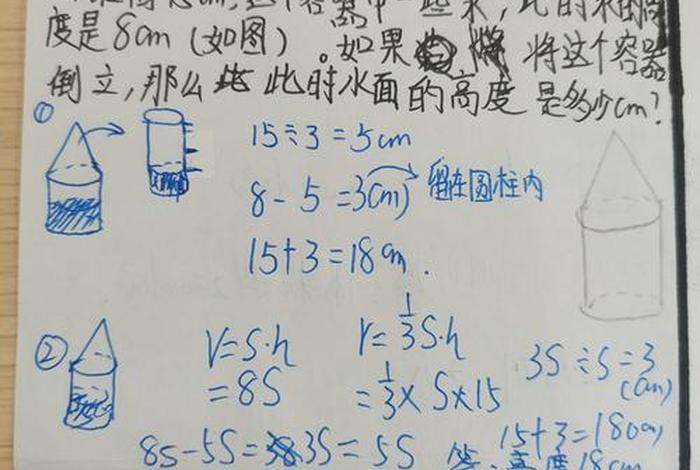 cm,这个容器中一些水,此时水的高
度是8cm(如图)。如果 将 将这个容器
倒立,那么此 此时水面的高度是多少cm?
①
15÷3=5cm
8-5=3(cm) 留在圆柱内
15+3=18cm.
②
V=S·h V=1/3S·h
=8S =1/3×S×15
3S÷S=3(cm)
8S-5S=3S=5S
15+3=18(cm)
答:高度18cm